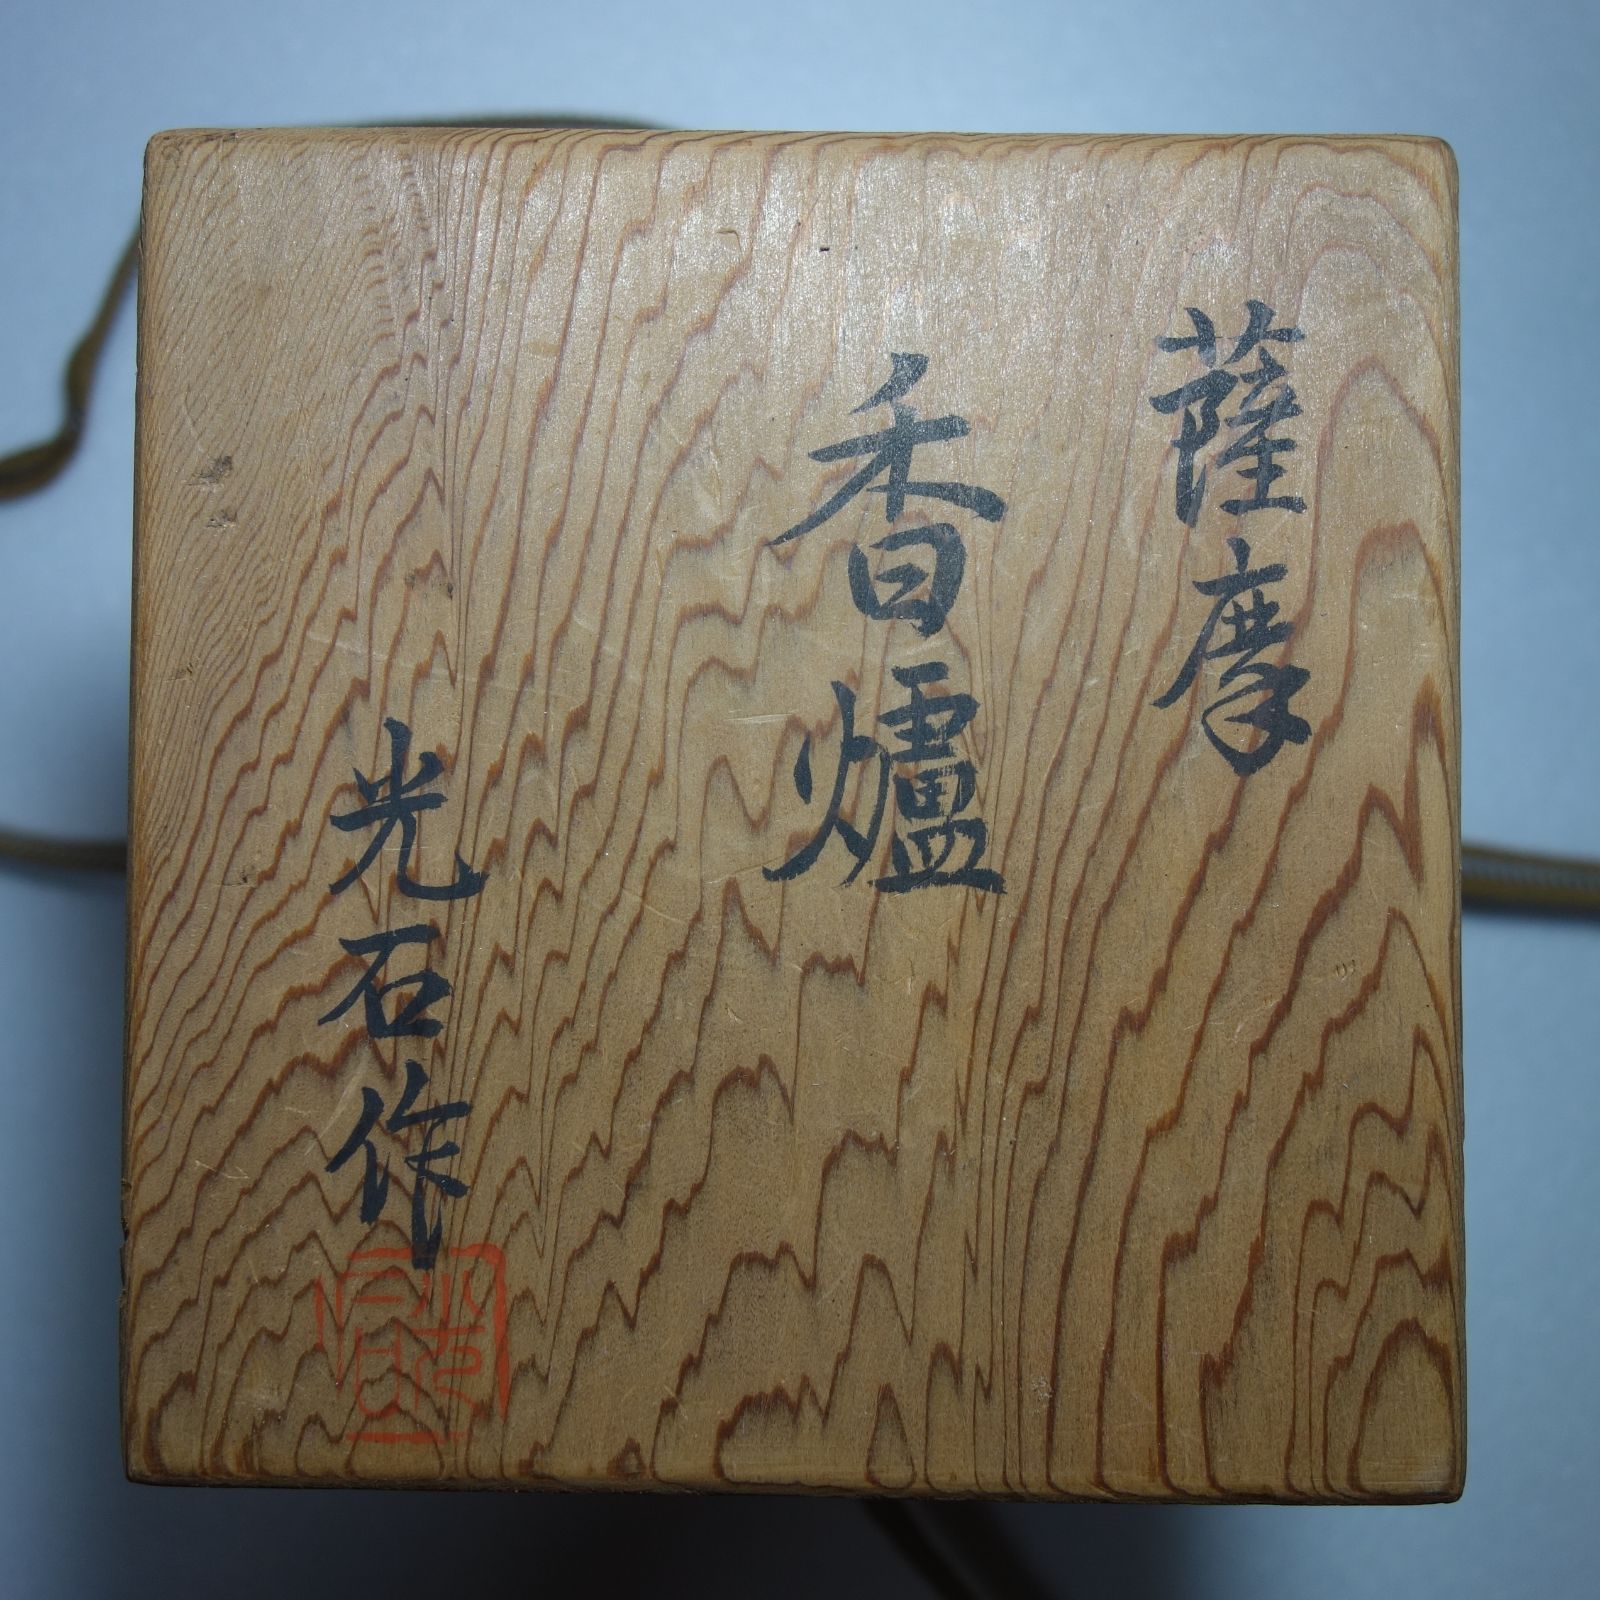 薩摩
香爐
光石作